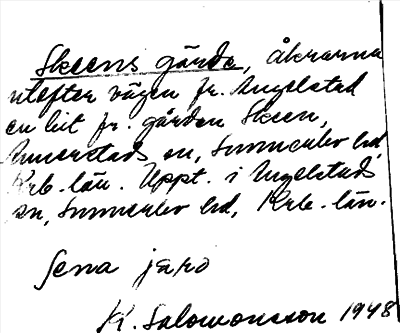 Skeens gärde, åkrarna
utefter vägen fr. Angelstad
en bit fr. gården Skeen,
Annerstads sn, Sunnerbo hd,
Krb. län. Uppt. i Angelstads
sn, Sunnerbo hd, Krb. län.
Sena jard
K. Salomonsson 1948